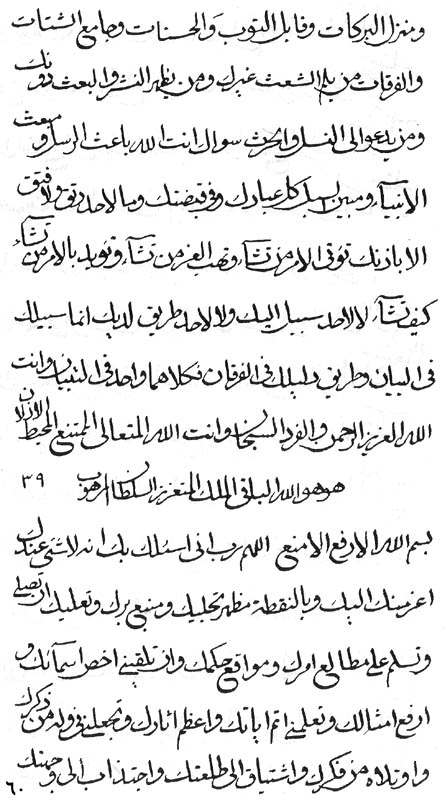 ومنزل البركات وقابل التوب والحسنات وجامع الشتات
والفرقات من يلم الشعث غيرك ومن يظهر النشر والبعث دونك
ومن يدعو الى النسل والحرث سواك انت الله باعث الرسل ومبعث
الانبيآء ومبين لسبل كل عبادك وفى قبضتك وما لاحد رتق ولا فتق
الا باذنك تؤتى الامر من تشآء وتهب العز من تشآء وتؤيد بالامر من تشآء
كيف تشآء لا لاحد سبيل اليك ولا لاحد طريق لديك انما سبيلك
فى البيان وطريق دليلك فى الفرقان فكلاهما واحد فى التبيان وانت
الله العزيز الرحمن والفرد السبحان وانت الله المتعالى الممتنع المحيط
هو هو الله الباقى الملك المتعزز السلطان المرهوب ٣٩
بسم الله الارفع الامنع اللهم رب انى اسئلك بك انه لا شئ عندك
اعز منك اليك وبالنقطة مظهر تجليك ومنبع برك وتعليك ان تصلى
وتسلم على مطالع امرك ومواقع حكمك وان تلقينى اخص اسمآئك و
ارفع امثالك وتعلمنى اتم اياتك واعظم اثارك وتجعلنى فى وله من ذكرك
وابتلاه من فكرك واشتياق الى طلعتك واجتذاب الى وجهتك
٦٠